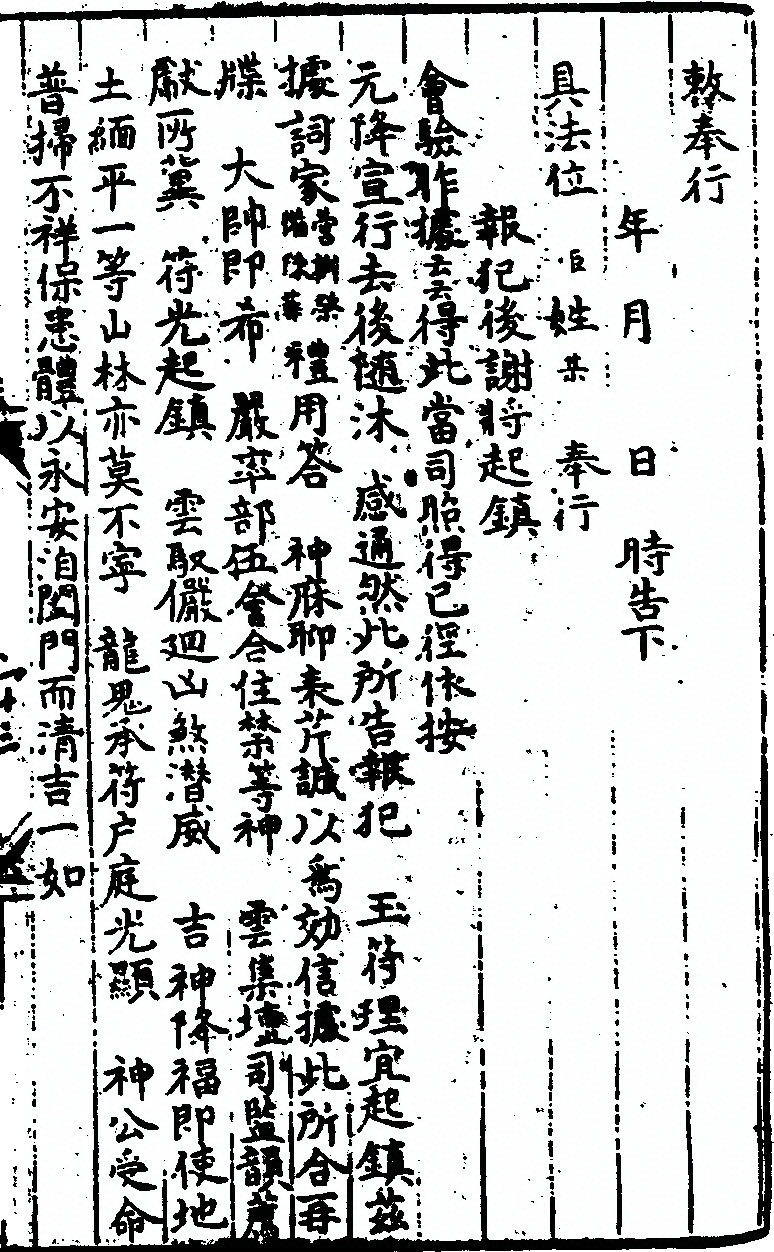 敕奉行
年 月 日 時告下
具法位 臣 姓 某 奉行
報犯後謝將起鎮
會驗昨據云云得此當司照得已徑依按
元降宣行去後随沐 感通然此所告報犯 玉符理宜起鎮茲
據詞家 禮用答 神庥聊表芹誠以為効信據此所合再
牒 大帥即希 嚴率部伍會合住禁等神 雲集壇司監韻薦
獻所冀 符光起鎮 雲馭儼廻凶煞潜威 吉神降福即使地
土緬平一等山林亦莫不寧 龍鬼承符户庭光顯 神公受命
普掃不祥保患體以永安洎閤門而清吉一如
十三